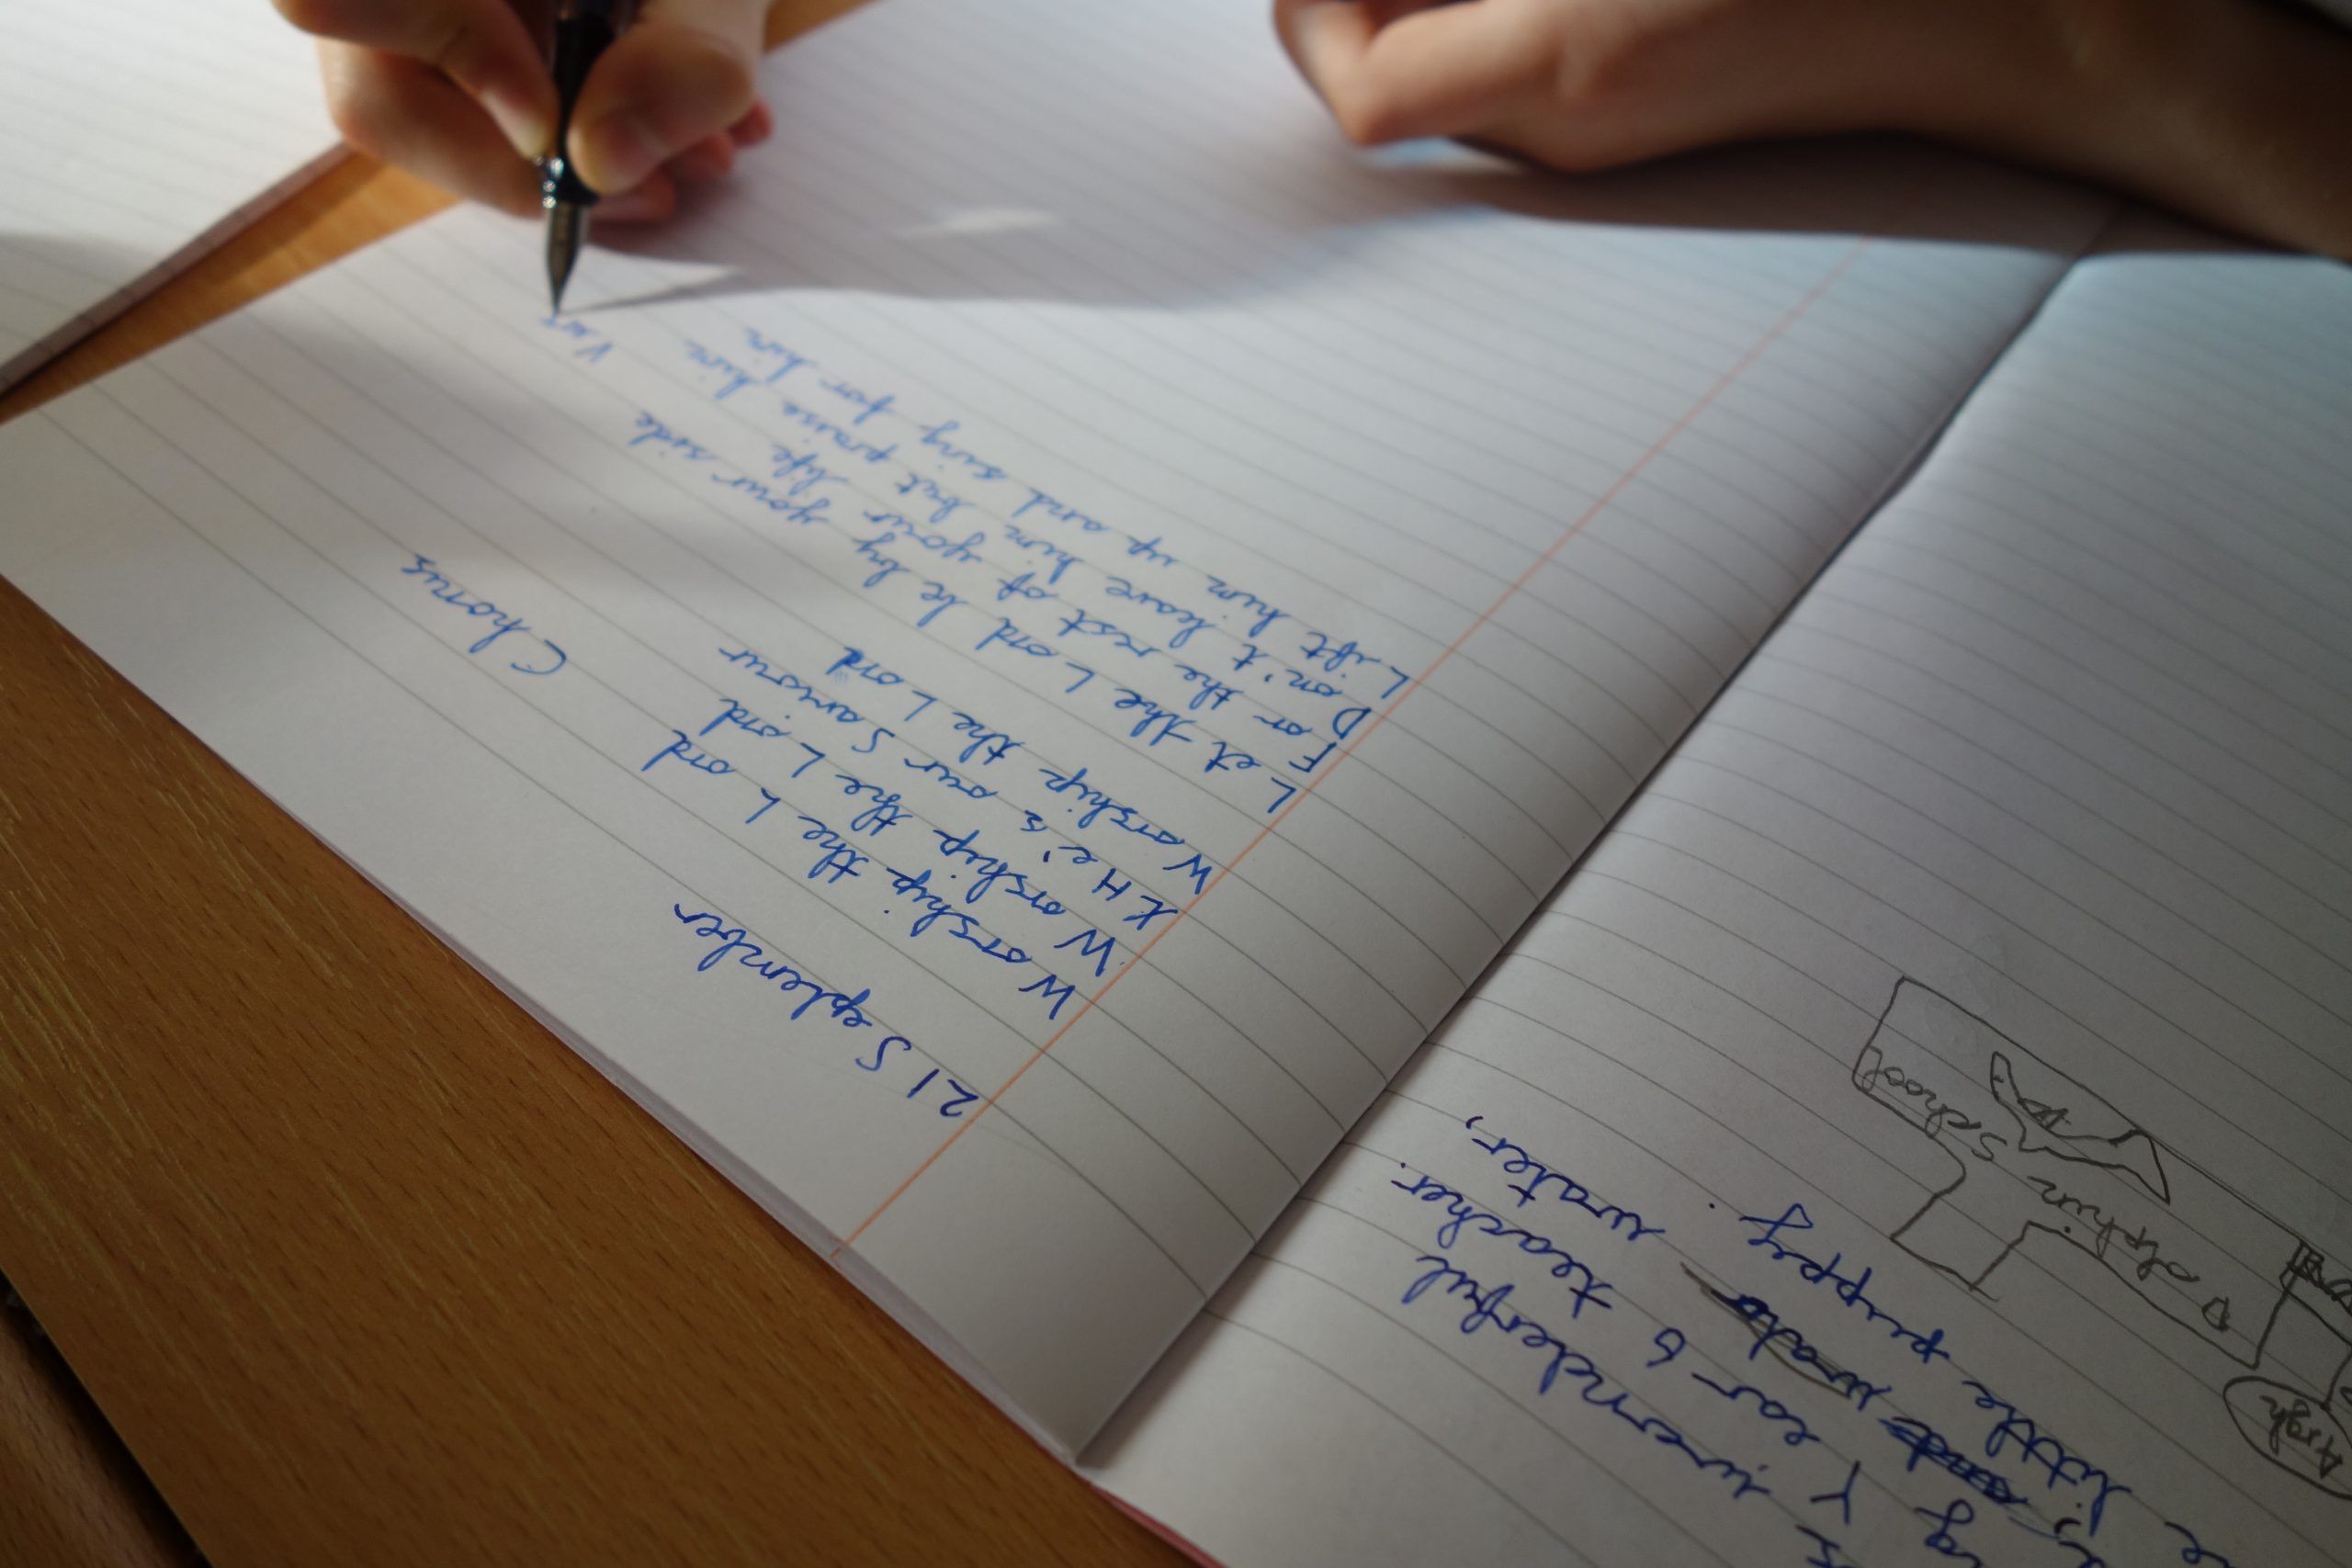 wonderful
Year 6 teacher.
water,
little puppy.
Argh
Dolphin School
21 September
Worship the Lord Chorus
Worship the Lord
He's our Saviour
Worship the Lord
Let the Lord be by your side
For the rest of your life
Don't leave him but praise him
Lift him up and sing for him